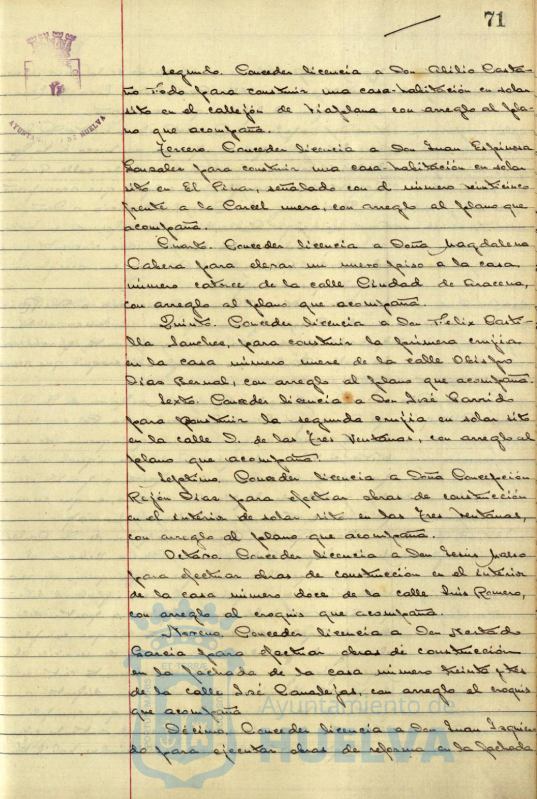 71
AYUNTAMIENTO DE HUELVA
Segundo. Conceder licencia a Don Abilio Casta-
ño Todo para construir una casa-habitación en solar
sito en el callejón de Viaplana con arreglo al pla-
no que acompaña.
Tercero. Conceder licencia a Don Juan Espinosa
Gonzalez para construir una casa-habitación en solar
sito en El Pinar, señalado con el número veinticinco
frente a la Carcel nueva, con arreglo al plano que
acompaña.
Cuarto. Conceder licencia a Doña Magdalena
Cabera para elevar un nuevo piso a la casa
número catorce de la calle Ciudad de Aracena,
con arreglo al plano que acompaña.
Quinto. Conceder licencia a Don Felix Caste-
lla Sanches, para construir la primera crujia
en la casa número nueve de la calle Obispo
Dias Bernal, con arreglo al plano que acompaña.
Sexto. Conceder licencia a Don José Garrido
para construir la segunda crujia en solar sito
en la calle D. de las Tres Ventanas, con arreglo al
plano que acompaña.
Septimo. Conceder licencia a Doña Concepción
Rejón Dias para efectuar obras de construcción
en el interior de solar sito en las Tres Ventanas,
con arreglo al plano que acompaña.
Octavo. Conceder licencia a Don
para efectuar obras de construcción en el interior
de la casa número doce de la calle Luis Romero,
con arreglo al croquis que acompaña.
Noveno. Conceder licencia a Don
Garcia para efectuar obras de construcción
en la fachada de la casa número treinta y tres
de la calle José Canalejas, con arreglo al croquis
que acompaña
Décimo. Conceder licencia a Don Juan Izquier-
do para ejecutar obras de reforma en la fachada
Ayuntamiento de
HUELVA